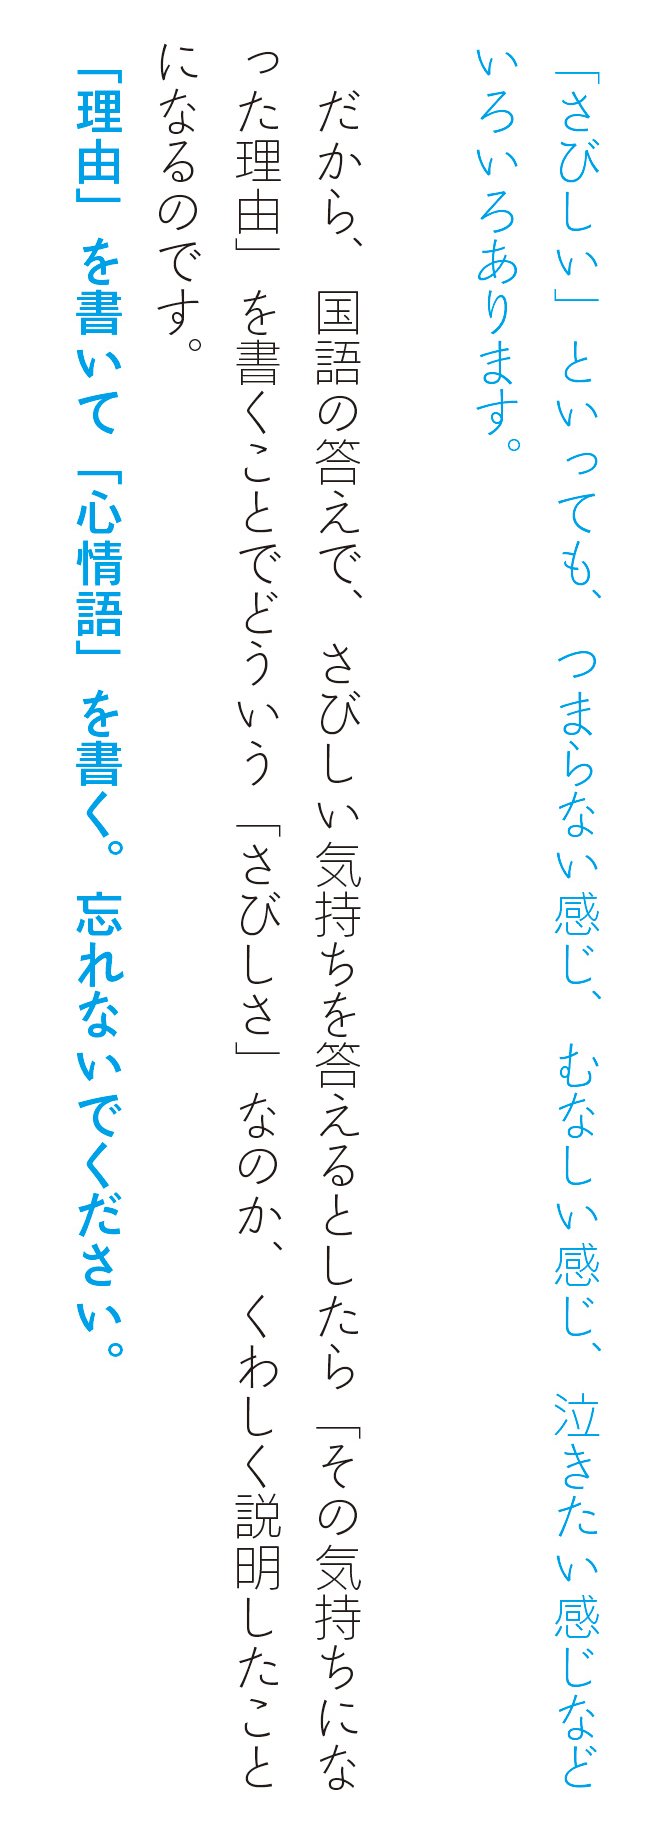 「さびしい」といっても、つまらない感じ、むなしい感じ、泣きたい感じなど
いろいろあります。
だから、国語の答えで、さびしい気持ちを答えるとしたら「その気持ちにな
った理由」を書くことでどういう「さびしさ」なのか、くわしく説明したこと
になるのです。
「理由」を書いて「心情語」を書く。忘れないでください。